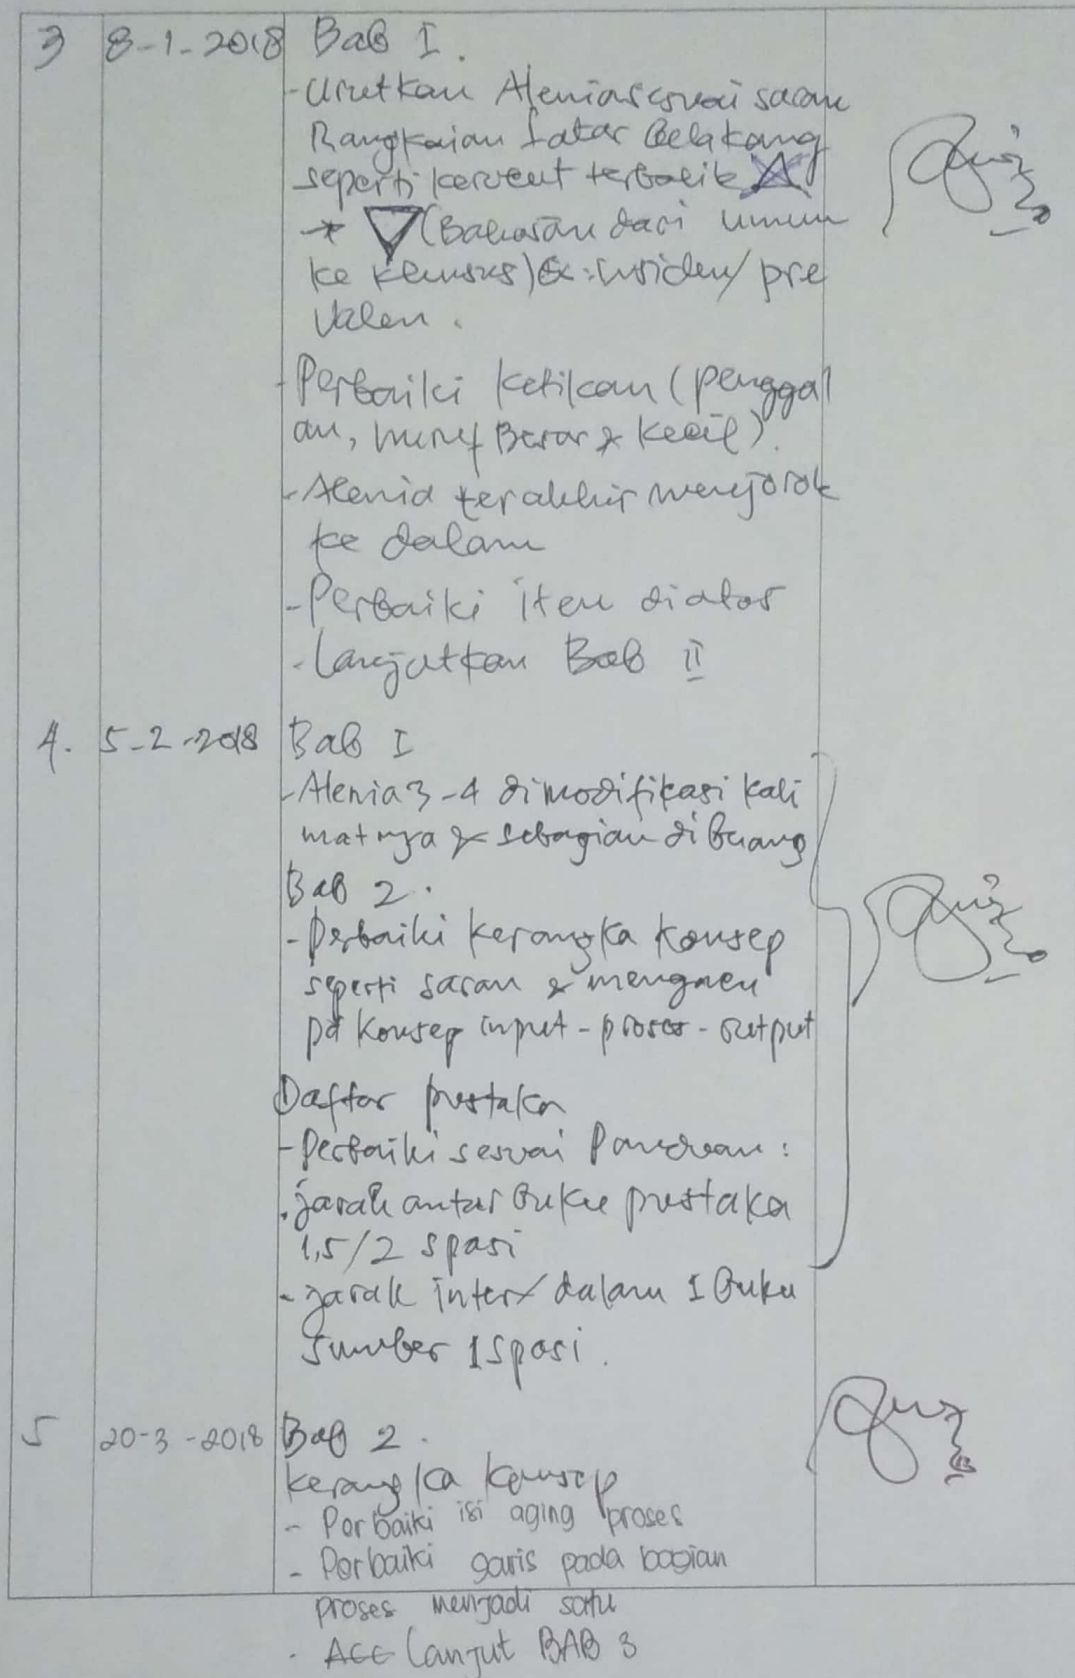 3 8-1-2018 Bab I.
- Urutkan Alenia sesuai saran
Rangkaian Latar Belakang
seperti kerucut terbalik
→ (Bahasan dari umum
ke khusus) & insiden/pre
valen.
- Perbaiki ketikan (penggal
an, huruf Besar & kecil).
- Alenia terakhir menjorok
ke dalam
- Perbaiki item diatas
- Lanjutkan Bab II
4. 5-2-2018 Bab I
- Alenia 3-4 dimodifikasi kali
matnya & sebagian dibuang
Bab 2.
- Perbaiki kerangka konsep
seperti saran & mengacu
pd konsep input - proses - output
Daftar pustaka
- Perbaiki sesuai Panduan :
. jarak antar Buku pustaka
1,5/2 spasi
- jarak inter dalam 1 Buku
Sumber 1 spasi.
5 20-3-2018 Bab 2.
kerangka konsep
- Perbaiki isi aging proses
- Perbaiki garis pada bagian
proses menjadi satu
- ACC Lanjut BAB 3